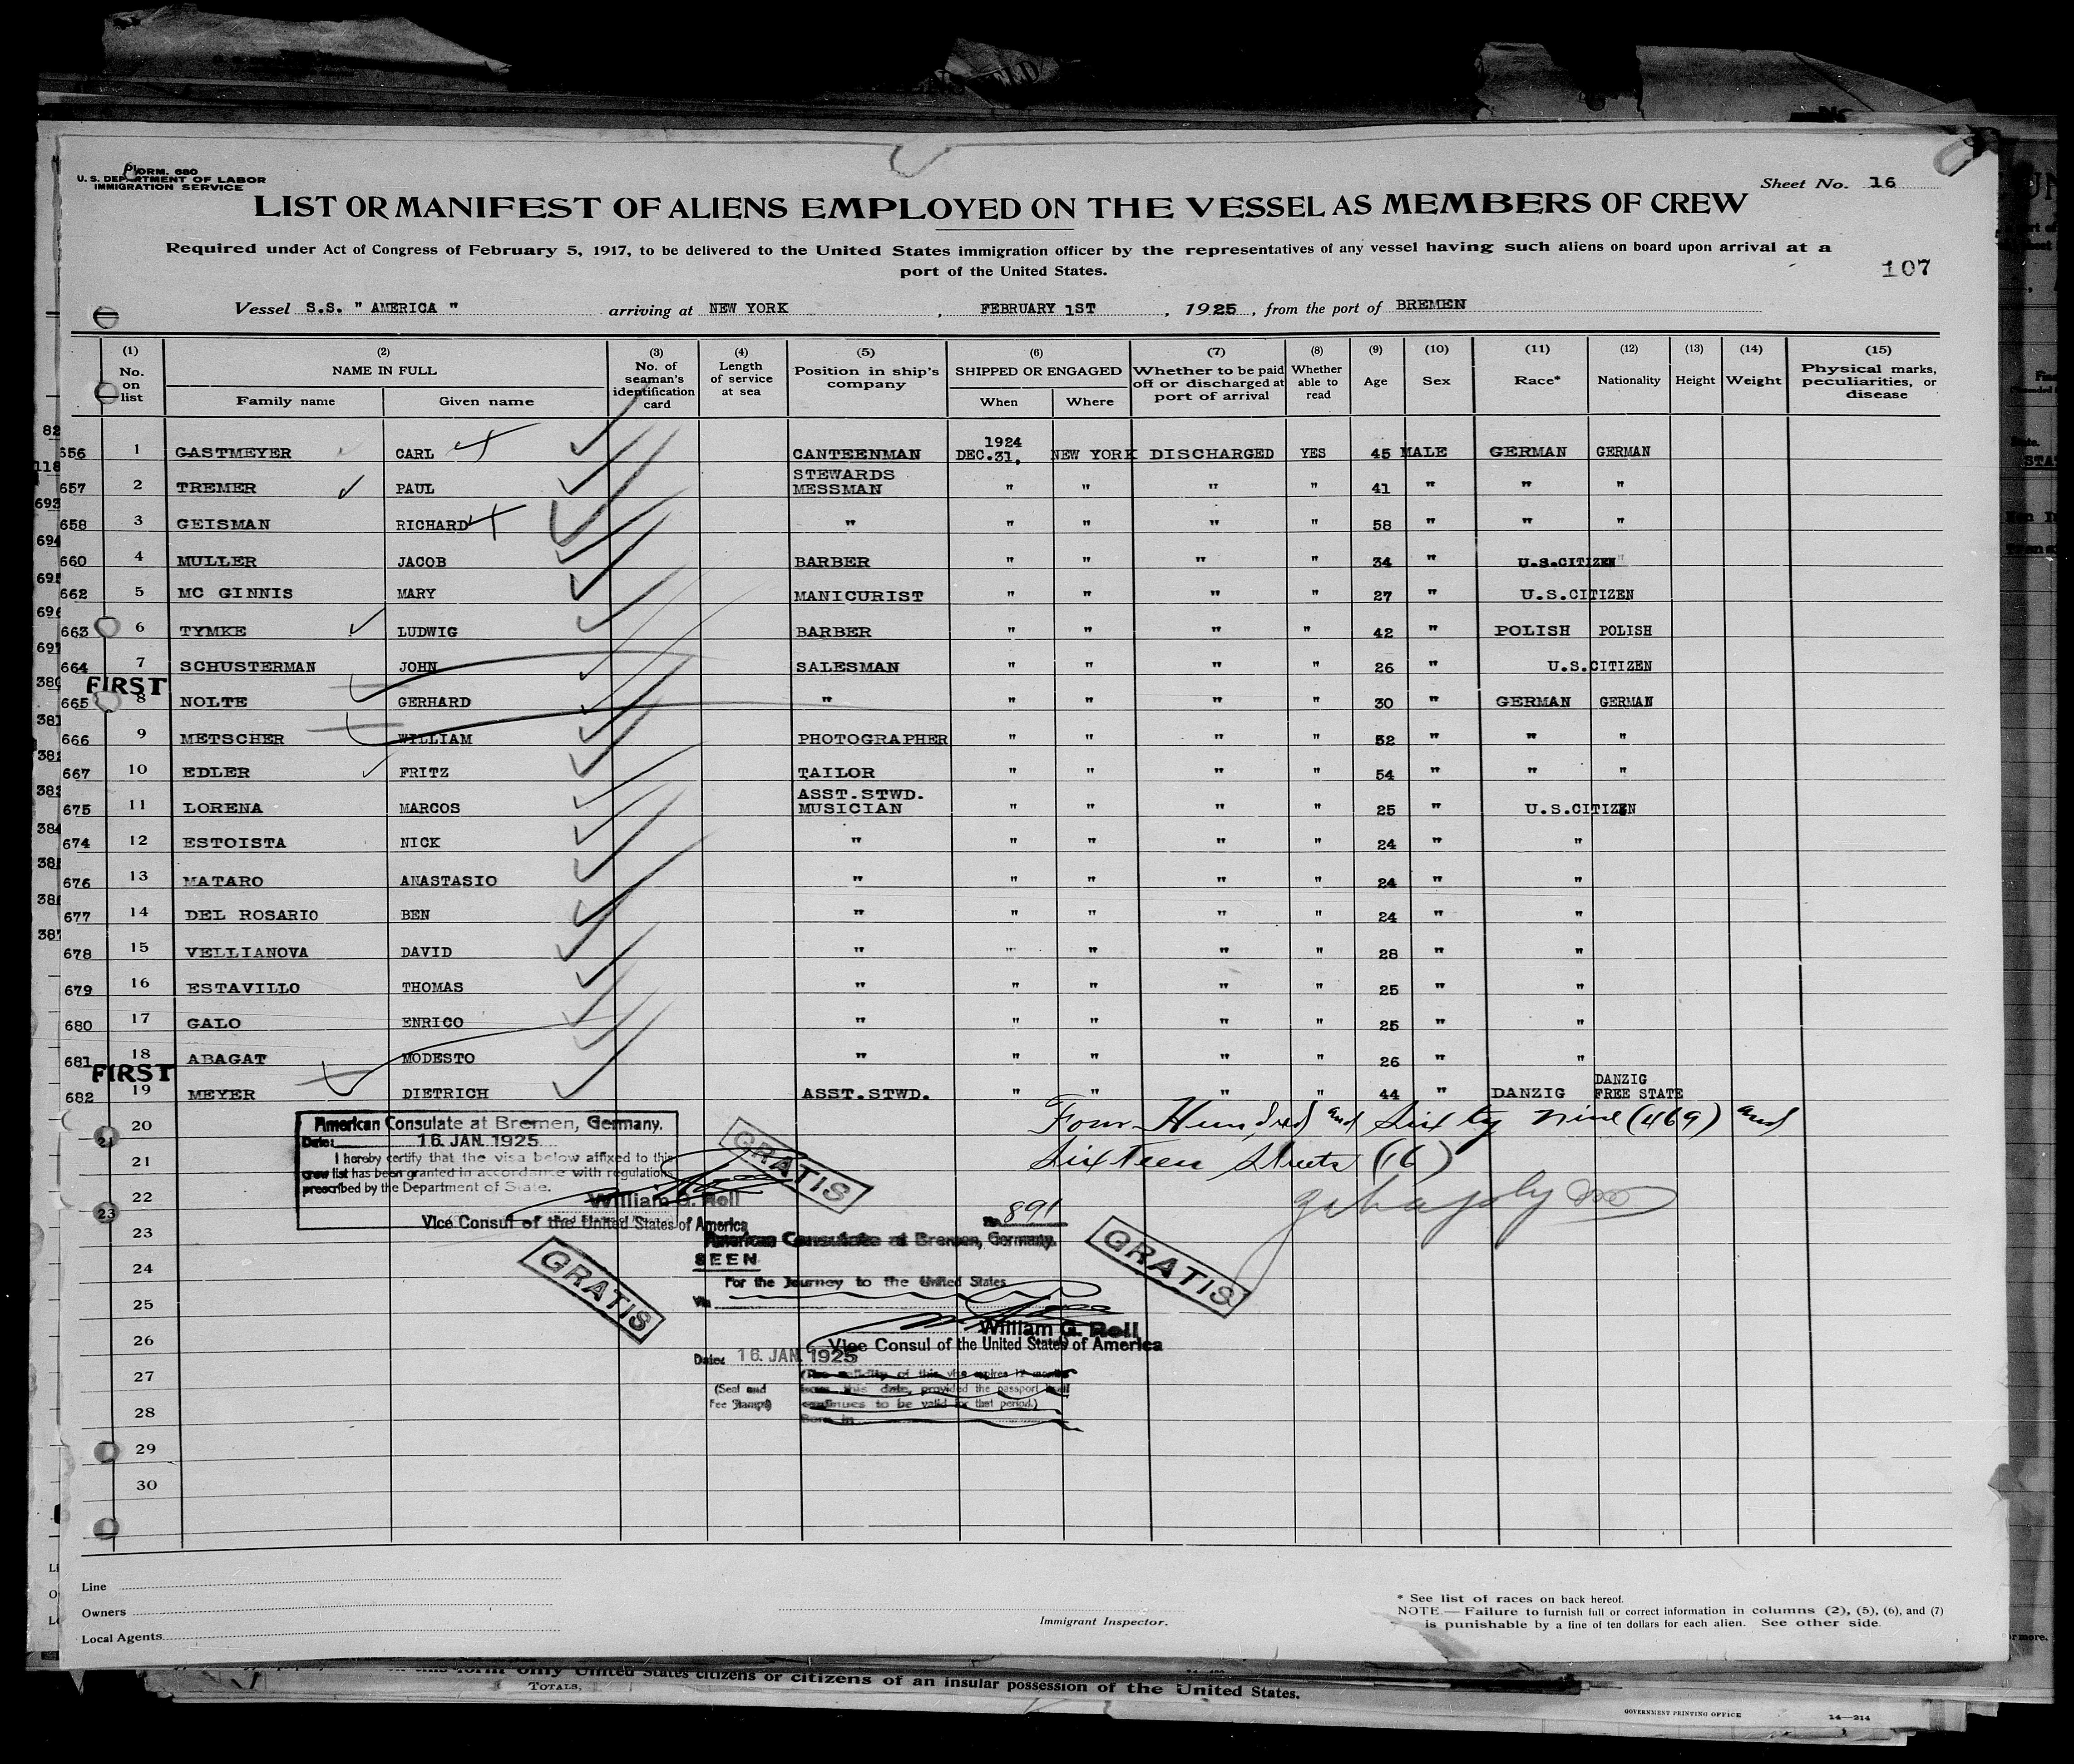 FORM. 680
U. S. DEPARTMENT OF LABOR
IMMIGRATION SERVICE
Sheet No. 16
LIST OR MANIFEST OF ALIENS EMPLOYED ON THE VESSEL AS MEMBERS OF CREW
Required under Act of Congress of February 5, 1917, to be delivered to the United States immigration officer by the representatives of any vessel having such aliens on board upon arrival at a
port of the United States.
107
Vessel S.S. " AMERICA " arriving at NEW YORK , FEBRUARY 1ST , 1925 , from the port of BREMEN
(1) No. on list (2) NAME IN FULL Family name Given name (3) No. of seaman's identification card (4) Length of service at sea (5) Position in ship's company (6) SHIPPED OR ENGAGED When Where (7) Whether to be paid off or discharged at port of arrival (8) Whether able to read (9) Age (10) Sex (11) Race* (12) Nationality (13) Height (14) Weight (15) Physical marks, peculiarities, or disease
656 1 GASTMEYER CARL CANTEENMAN 1924 DEC.31, NEW YORK DISCHARGED YES 45 MALE GERMAN GERMAN
657 2 TREMER PAUL STEWARDS MESSMAN " " " " 41 " " "
658 3 GEISMAN RICHARD " " " " " 58 " " "
660 4 MULLER JACOB BARBER " " " " 34 " U.S.CITIZEN
662 5 MC GINNIS MARY MANICURIST " " " " 27 " U.S.CITIZEN
663 6 TYMKE LUDWIG BARBER " " " " 42 " POLISH POLISH
664 7 SCHUSTERMAN JOHN SALESMAN " " " " 26 " U.S.CITIZEN
FIRST
665 8 NOLTE GERHARD " " " " " 30 " GERMAN GERMAN
666 9 METSCHER WILLIAM PHOTOGRAPHER " " " " 52 " " "
667 10 EDLER FRITZ TAILOR " " " " 54 " " "
675 11 LORENA MARCOS ASST.STWD. MUSICIAN " " " " 25 " U.S.CITIZEN
674 12 ESTOISTA NICK " " " " " 24 " "
676 13 MATARO ANASTASIO " " " " " 24 " "
677 14 DEL ROSARIO BEN " " " " " 24 " "
678 15 VELLIANOVA DAVID " " " " " 28 " "
679 16 ESTAVILLO THOMAS " " " " " 25 " "
680 17 GALO ENRICO " " " " " 25 " "
681 18 ABAGAT MODESTO " " " " " 26 " "
FIRST
682 19 MEYER DIETRICH ASST.STWD. " " " " 44 " DANZIG DANZIG FREE STATE
20
21
22
23
24
25
26
27
28
29
30
Four Hundred and Sixty nine (469) and
Sixteen Sheets (16)
American Consulate at Bremen, Germany.
Date: 16. JAN. 1925
I hereby certify that the visa below affixed to this
crew list has been granted in accordance with regulations
prescribed by the Department of State.
William G. Roll
Vice Consul of the United States of America
GRATIS
GRATIS
GRATIS
No. 891
American Consulate at Bremen, Germany.
SEEN
For the Journey to the United States
Via
William G. Roll
Vice Consul of the United States of America
Date: 16. JAN. 1925
(The validity of this visa expires 12 months
from this date, provided the passport itself
continues to be valid for that period.)
Born in
(Seal and
Fee Stamps)
Line
Owners
Local Agents
Immigrant Inspector.
* See list of races on back hereof.
NOTE.—Failure to furnish full or correct information in columns (2), (5), (6), and (7)
is punishable by a fine of ten dollars for each alien. See other side.
this form only United States citizens or citizens of an insular possession of the United States.
TOTALS,
GOVERNMENT PRINTING OFFICE 14—214